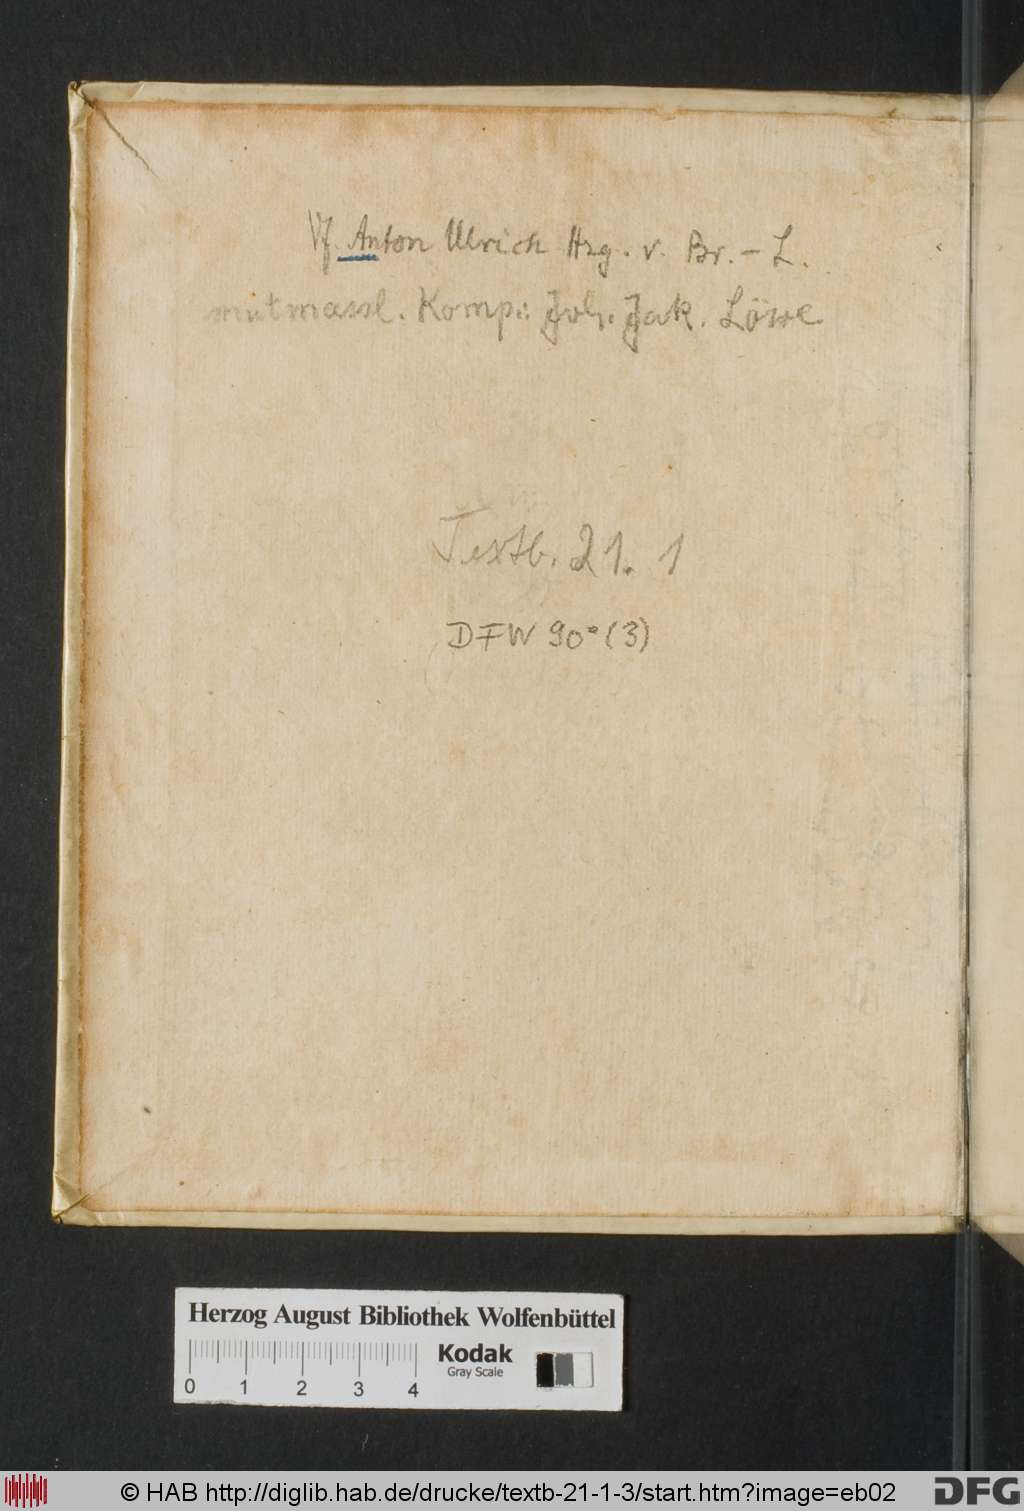 Vf. Anton Ulrich Hzg. v. Br.-L.
mutmassl. Komp.: Joh. Jak. Löwe
Textb. 21. 1
DFW 90° (3)
Herzog August Bibliothek Wolfenbüttel
Kodak
Gray Scale
0 1 2 3 4
© HAB http://diglib.hab.de/drucke/textb-21-1-3/start.htm?image=eb02
DFG